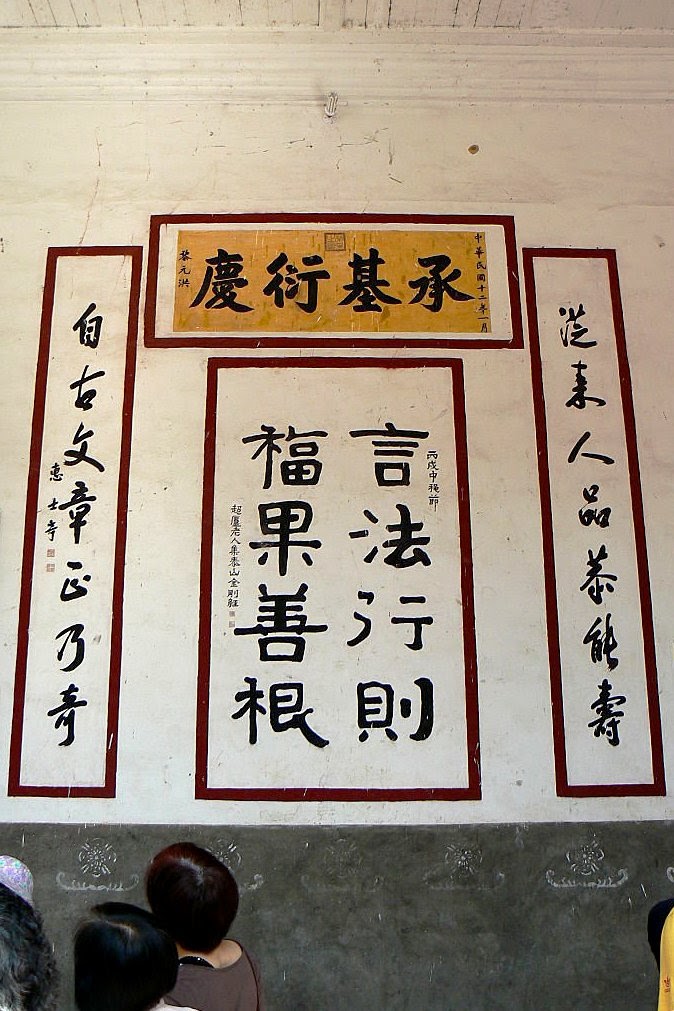 中華民國十二年一月
承基衍慶
黎元洪
從來人品恭能壽
丙戌中秋節
言法行則
福果善根
超廬老人集泰山金剛經
自古文章正乃奇
惠士奇